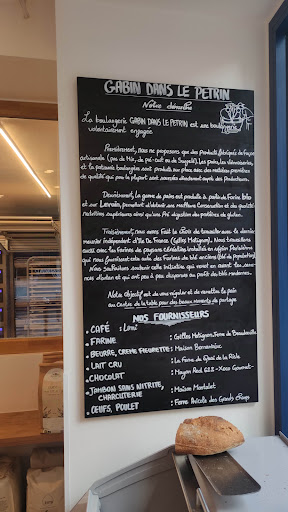 GABIN DANS LE PETRIN
Notre démarche
La boulangerie GABIN DANS LE PETRIN est une boulangerie
volontairement engagée
Premièrement, nous ne proposons que des produits fabriqués de façon
artisanale (pas de Mix, de pré-cuit ou de Surgelé). Les pains, les viennoiseries,
et la patisserie boulangère sont produits sur place avec des matières premières
de qualité qui pour la plupart sont achetées directement auprès des Producteurs.
Deuxièmement, la gamme de pains est produite à partir de Farine bio
et sur Levain, permettant d'obtenir une meilleure conservation et des qualités
nutritives supérieures ainsi qu'une Pré digestion des protéines de gluten.
Troisièmement, nous avons fait le choix de travailler avec le dernier
meunier indépendant d'Ile De France (Gilles Matignon). Nous travaillons
aussi avec les farines de paysans céréaliers installés en région Parisienne
qui nous fournissent cela avec des Farines de blé anciens (blé de population)
Nous souhaitons soutenir cette initiative qui remet en avant les semences
et qui ont peu à peu disparues au profit de blés modernes.
Notre Objectif est de vous régaler et de remettre du pain
au Centre de la table pour des beaux moments de partage
NOS FOURNISSEURS
• CAFÉ : Lomi
• FARINE : Gilles Matignon, Ferme de
• BEURRE, CREME FLEURETTE : Maison
• LAIT CRU : La Ferme de
• CHOCOLAT
• JAMBON SANS NITRITE, : Maison
CHARCUTERIE
• OEUFS, POULET : Ferme Avicole des Grands